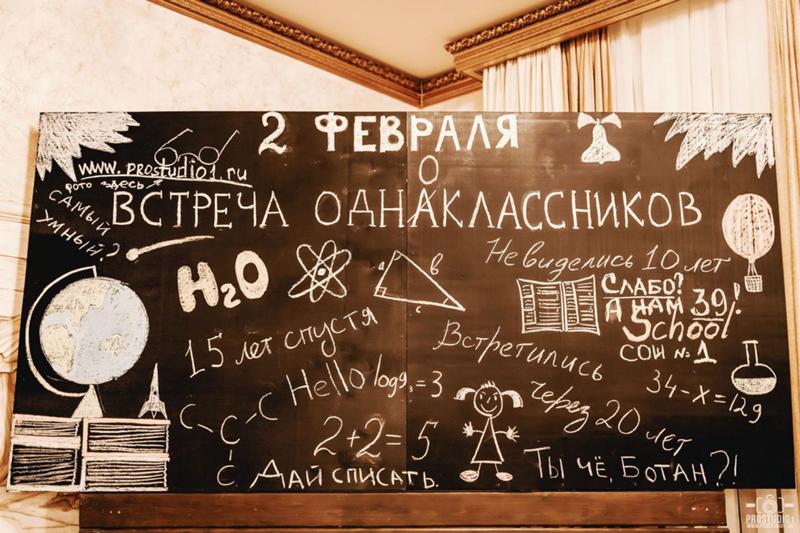 2 ФЕВРАЛЯ
www.prostudio1.ru
ФОТО ЗДЕСЬ
О
ВСТРЕЧА ОДНАКЛАССНИКОВ
САМЫЙ
УМНЫЙ?
Не виделись 10 лет
H2O
a b c
СЛАБО?
А НАМ 39!
School
СОШ №1
15 лет спустя
Встретились
через 20 лет
34-x=129
Hello
C-C-C
C
= 3
2+2=5
ДАЙ СПИСАТЬ.
ТЫ ЧЁ, БОТАН?!
PROSTUDIO1
WWW.PROSTUDIO1.RU